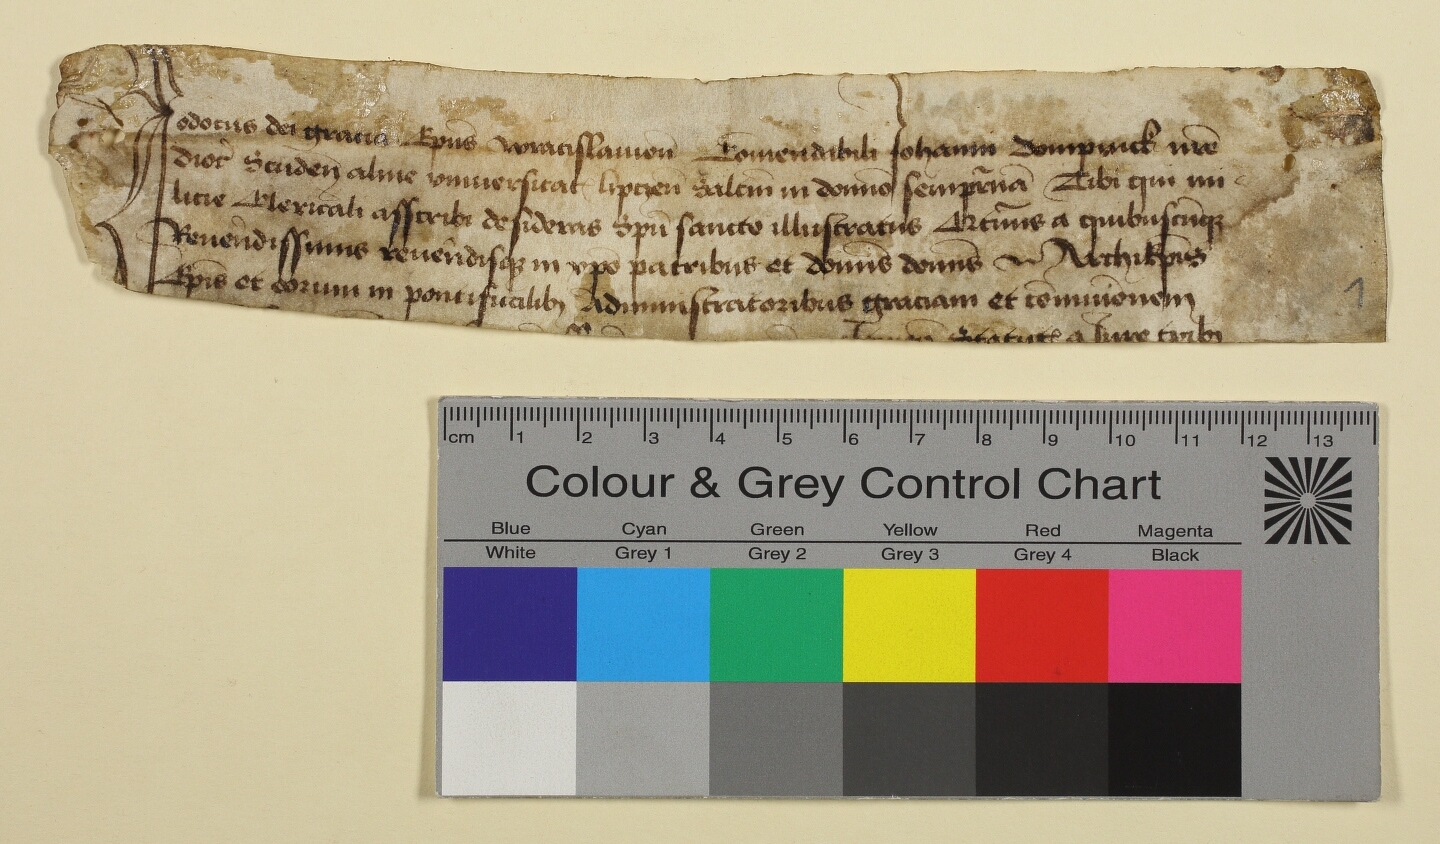 Jodocus dei gracia Ep̄us wratislauien̄ Com̄endabili Johanni
dioc̄ Studen̄ alme vniuersitat lipczen̄ Saltm̄ in domīo Tibi qui mi-
licie Clericali asscribi desideras Sp̄u sancto illustratus a quibuscūqz
Reuerēdissimis reuerēdisqz in xp̄o patribus et domīs domīs Archiep̄is
Ep̄is et eorum in pontificalibz Administratoribus graciam et cōmūionem
a Jure
1
cm 1 2 3 4 5 6 7 8 9 10 11 12 13
Colour & Grey Control Chart
Blue Cyan Green Yellow Red Magenta
White Grey 1 Grey 2 Grey 3 Grey 4 Black